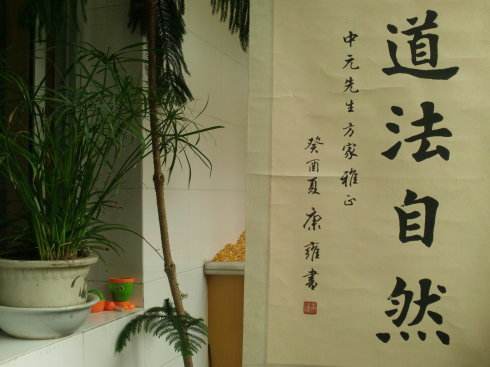 道法自然
中元先生方家雅正
癸酉夏 康雍书